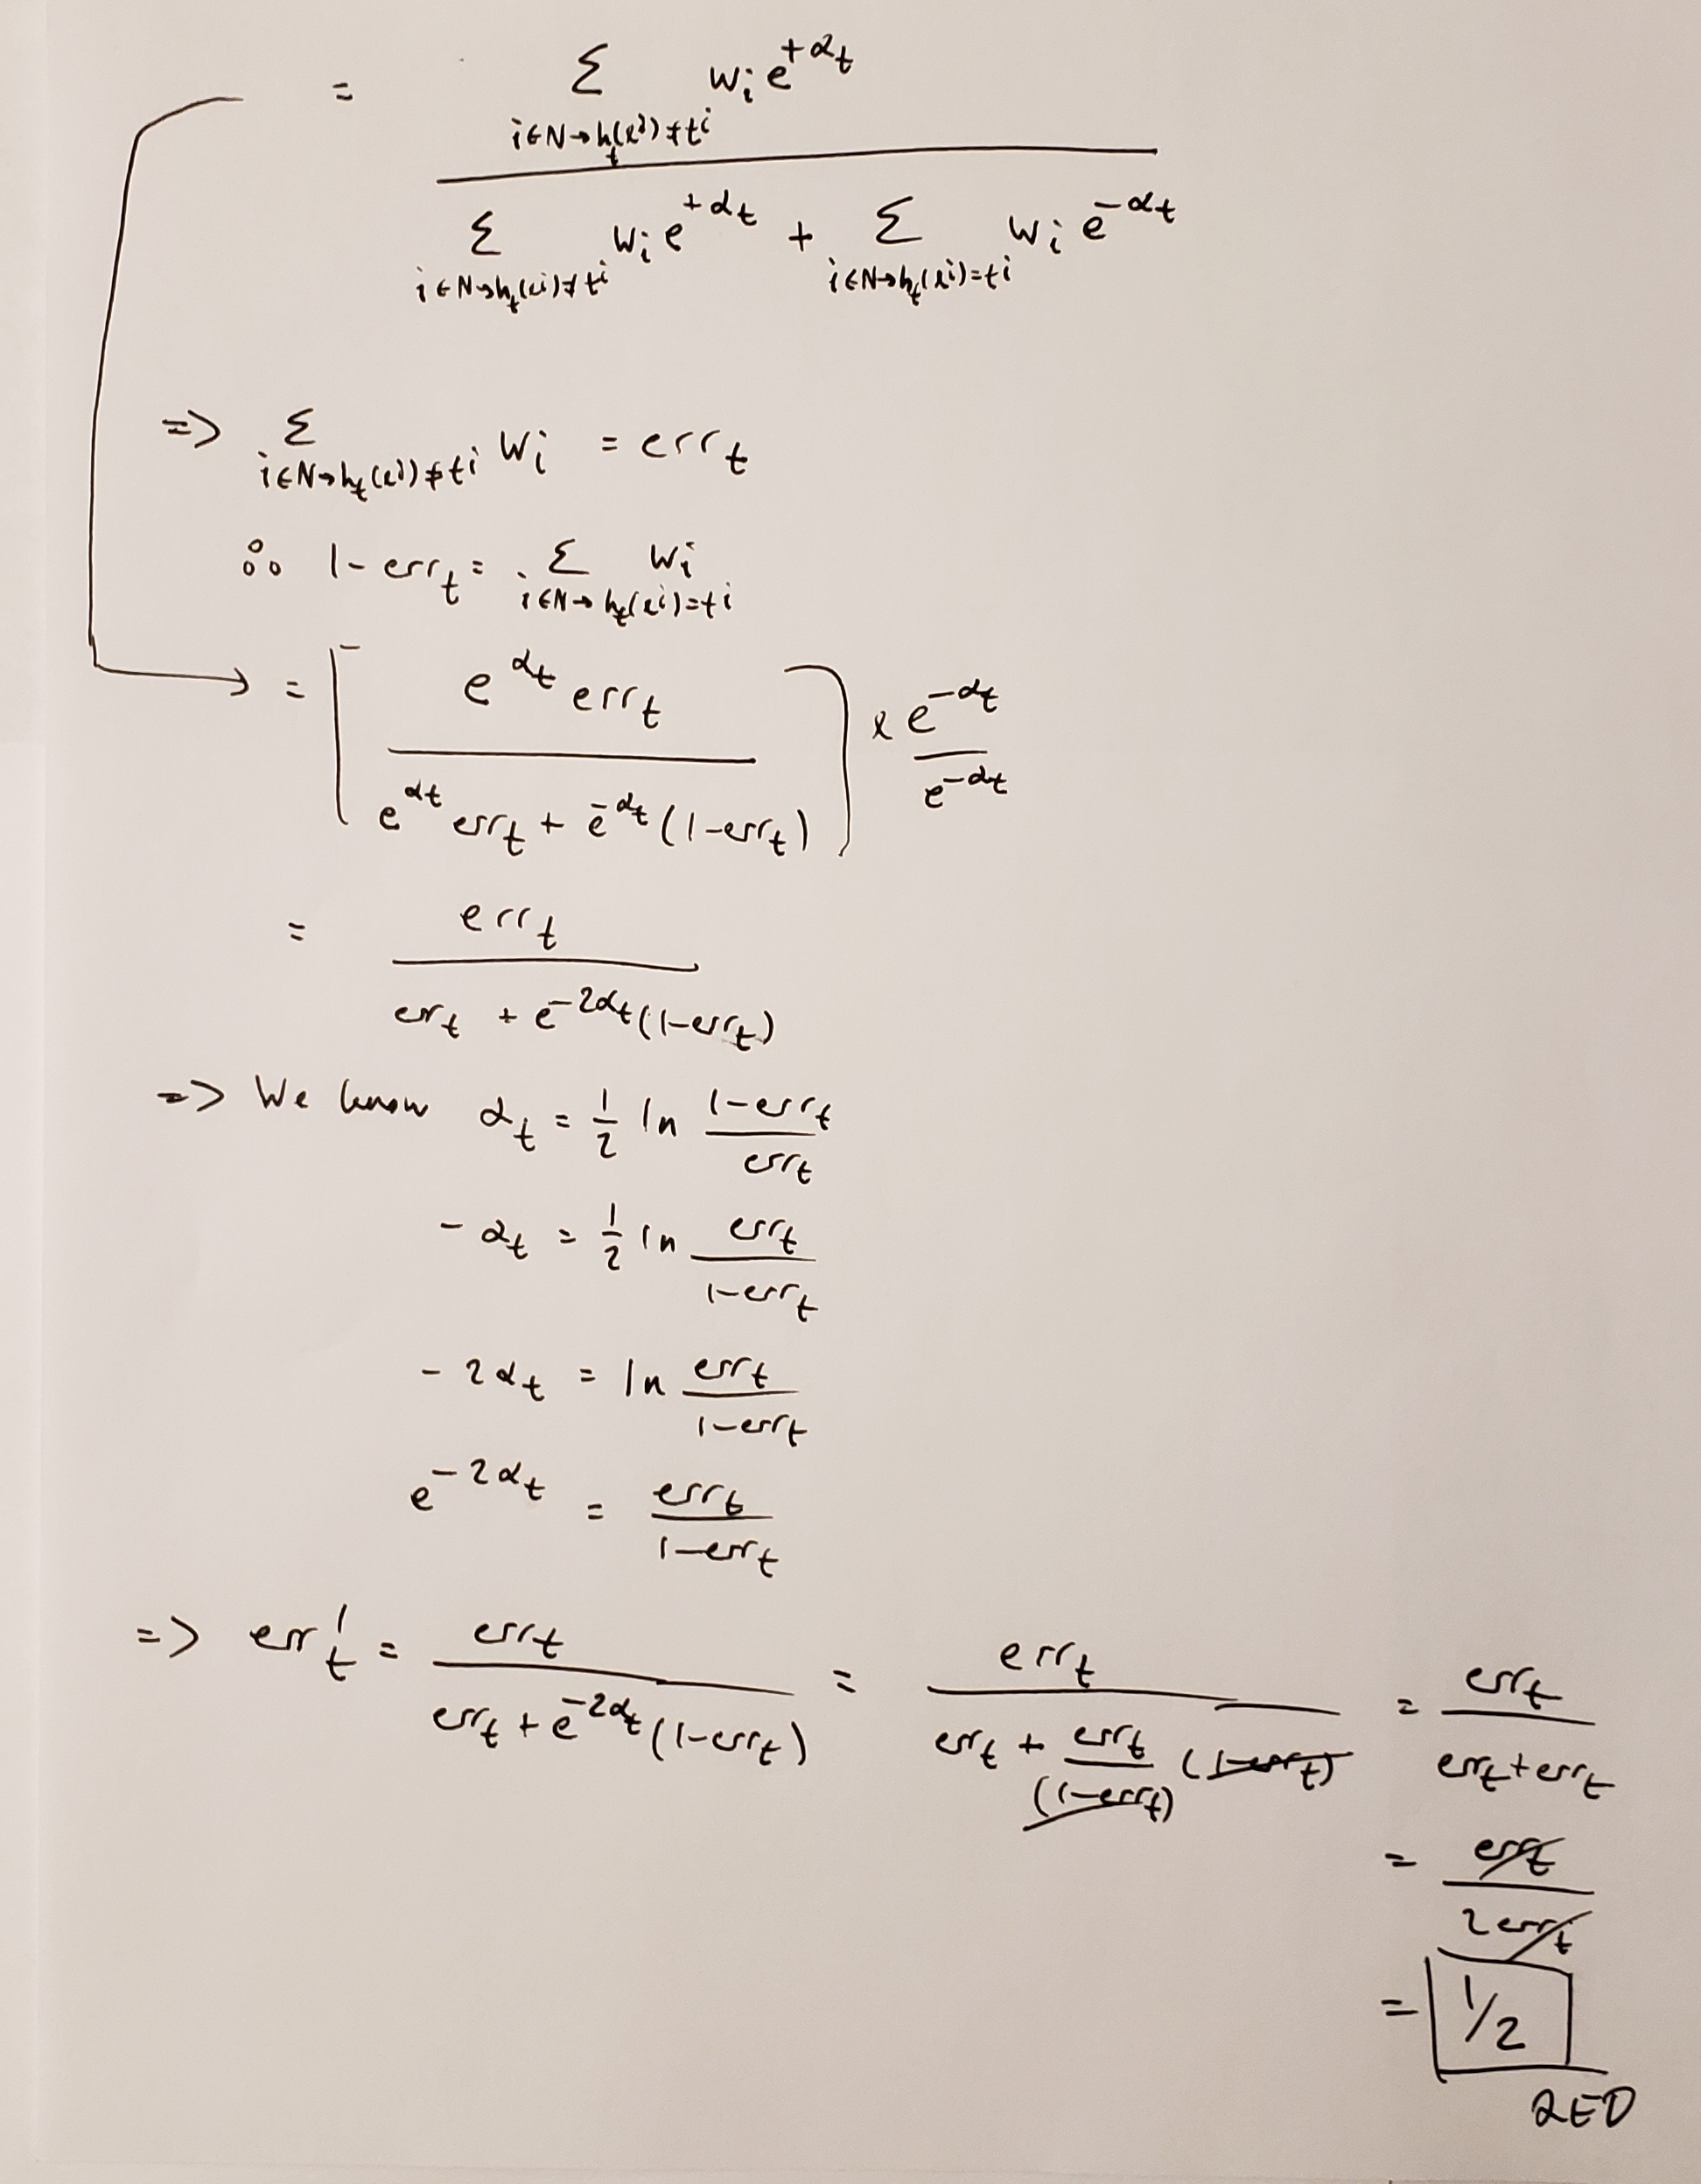 = Σ_{i∈N→h_t(x^i)≠t^i} w_i e^{+α_t}
/ Σ_{i∈N→h_t(x^i)≠t^i} w_i e^{+α_t} + Σ_{i∈N→h_t(x^i)=t^i} w_i e^{-α_t}
=> Σ_{i∈N→h_t(x^i)≠t^i} w_i = err_t
∴ 1-err_t = Σ_{i∈N→h_t(x^i)=t^i} w_i
→ = [ e^{α_t} err_t / e^{α_t} err_t + e^{-α_t} (1-err_t) ] × e^{-α_t} / e^{-α_t}
= err_t / err_t + e^{-2α_t} (1-err_t)
=> We know α_t = 1/2 ln 1-err_t / err_t
-α_t = 1/2 ln err_t / 1-err_t
-2α_t = ln err_t / 1-err_t
e^{-2α_t} = err_t / 1-err_t
=> err'_t = err_t / err_t + e^{-2α_t} (1-err_t) = err_t / err_t + err_t / (1-err_t) (1-err_t) = err_t / err_t + err_t
= err_t / 2 err_t
= 1/2
QED